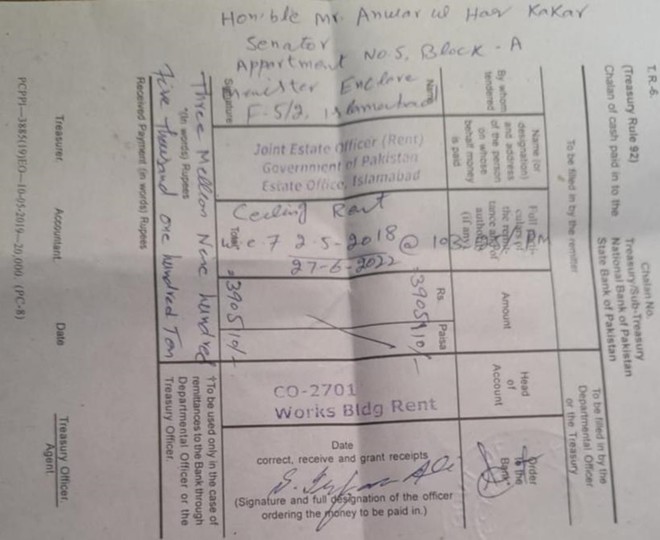 T.R-6.
(Treasury Rule 92)
Chalan of cash paid in to the
Chalan No.
Treasury/Sub-Treasury
National Bank of Pakistan
State Bank of Pakistan
To be filled in by the remitter
To be filled in by the
Departmental Officer
or the Treasury
By whom
tendered
Name (or
designation)
and address
of the person
on whose
behalf money
is paid
Amount
Head
of
Account
Order
to the
Bank
Rs.
Paisa
Hon'ble Mr. Anwar ul Haq Kakar
Senator
Appartment No 5, Block - A
Minister Enclave
F-5/2, Islamabad
Name
Signature
Joint Estate Officer (Rent)
Government of Pakistan
Estate Office, Islamabad
Ceeling Rent
w.e.f 2-5-2018 @
27-6-2022
390510/-
Total
390510/-
CO-2701
Works Bldg Rent
Date
correct, receive and grant receipts
(Signature and full designation of the officer
ordering the money to be paid in.)
*(In words) Rupees
Three Mellon Nine hundred
Five thousand one hundred Ten
†To be used only in the case of
remittances to the Bank through
Departmental Officer or the
Treasury Officer.
Received Payment (in words) Rupees
Treasurer.
Accountant.
Date
Treasury Officer
Agent
PCPPI—3885(19)EO—10-05-2019—20,000 (PC-8)